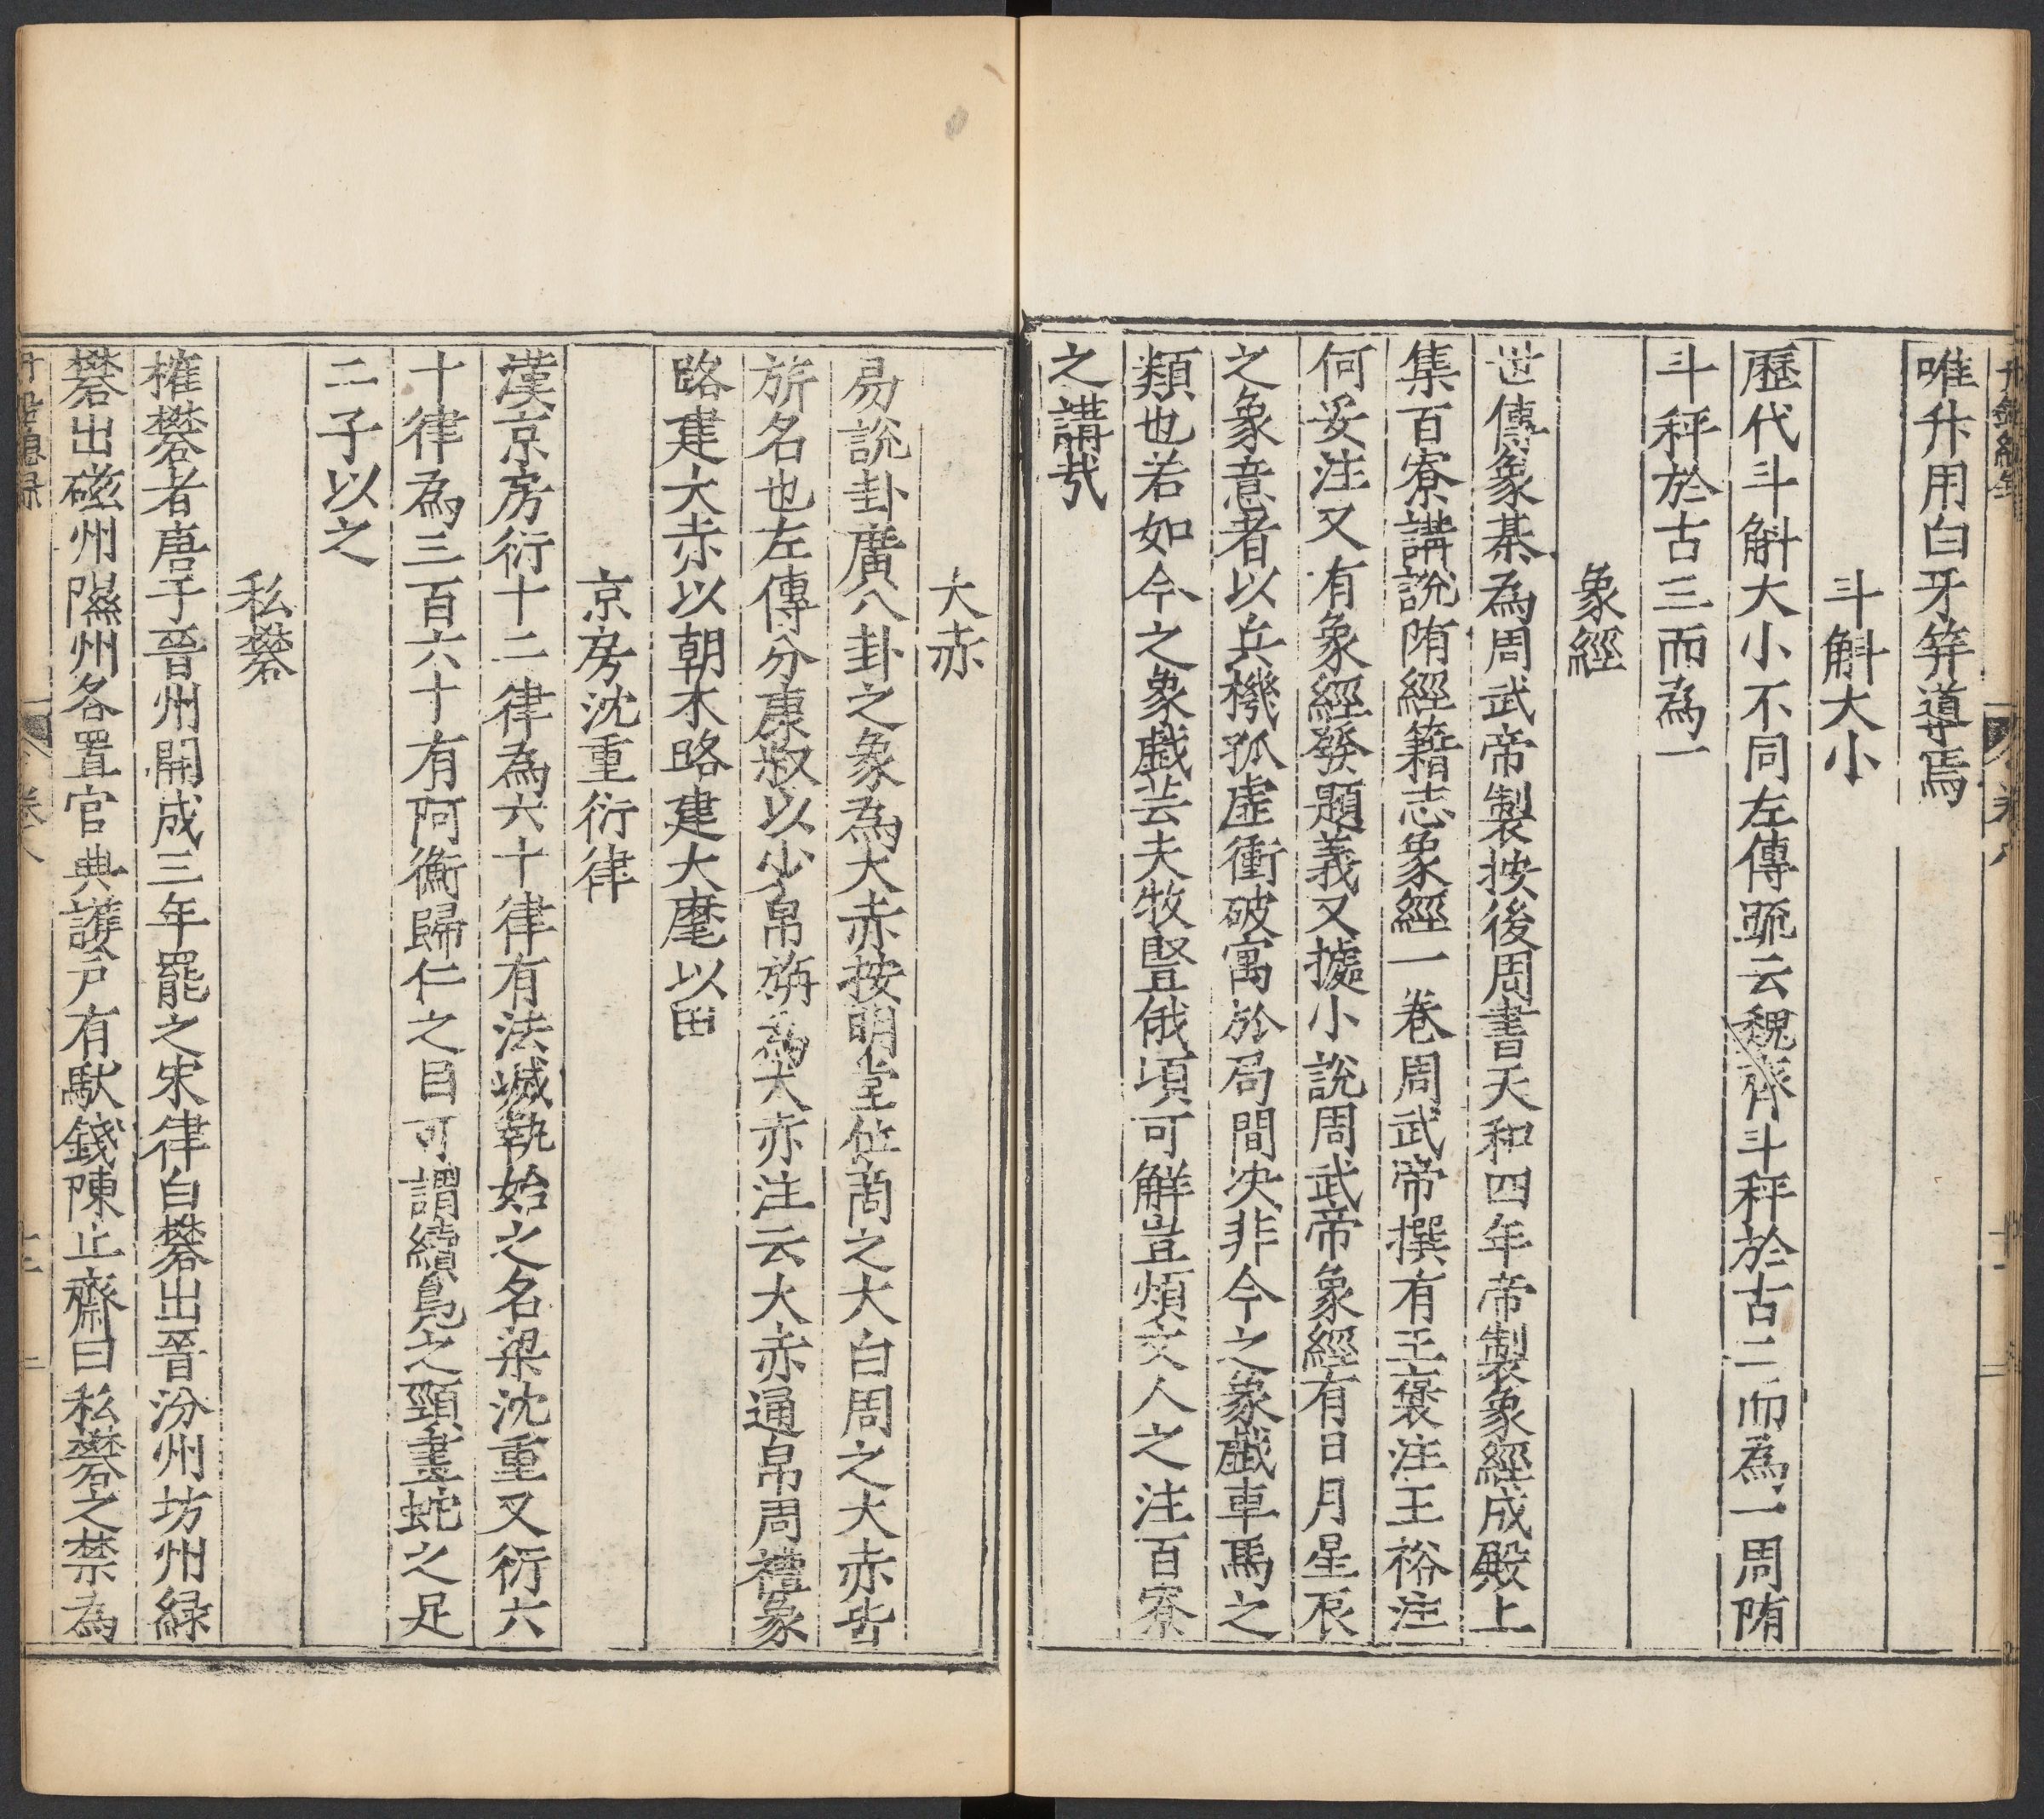 唯升用白牙筭導焉
斗斛大小
歷代斗斛大小不同左傳疏云魏齊斗秤於古二而為一周隋
斗秤於古三而為一
象經
世傳象棊為周武帝製按後周書天和四年帝製象經成殿上
集百寮講說隋經籍志象經一卷周武帝撰有王褒注王裕注
何妥注又有象經發題義又據小說周武帝象經有日月星辰
之象意者以兵機孤虛衝破寓於局間决非今之象戲車馬之
類也若如今之象戲芸夫牧豎俄頃可解豈煩文人之注百寮
之講㢤
大赤
易說卦廣八卦之象為大赤按明堂位商之大白周之大赤皆
旂名也左傳分康叔以少帛旃為大赤注云大赤通帛周禮象
路建大赤以朝木路建大麾以田
京房沈重衍律
漢京房衍十二律為六十律有法滅執始之名梁沈重又衍六
十律為三百六十有阿衡歸仁之目可謂續鳧之頸畫蛇之足
二子以之
私礬
榷礬者唐于晉州開成三年罷之宋律白礬出晉汾州坊州綠
礬出磁州隰州各置官典護戶有馱錢陳止齋曰私礬之禁為
卷八